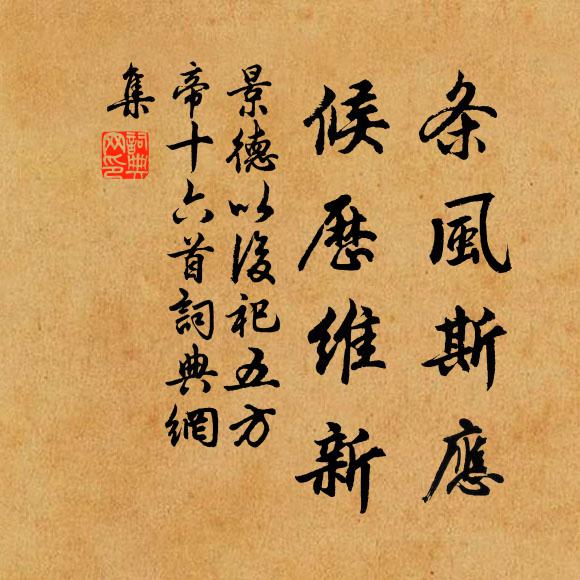 条風斯應
候歷維新
景德以後祀五方
帝十六首詞典網
集
詞典
网印